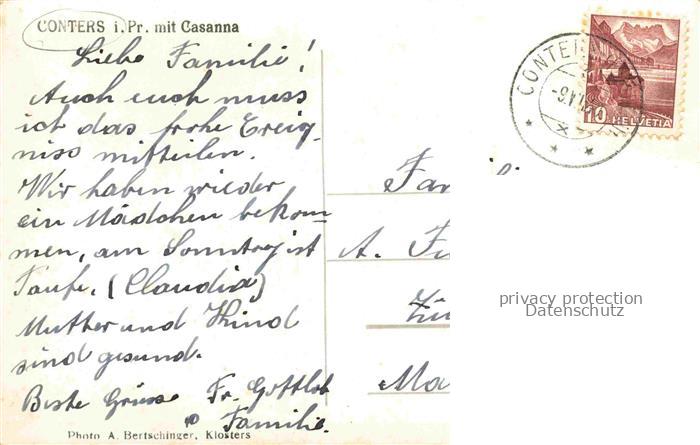 CONTERS i. Pr. mit Casanna
Liebe Familie!
Auch euch muss
ich das frohe Ereig-
niss mitteilen.
Wir haben wieder
ein Mädchen bekom
men, am Sonntag ist
Taufe. (Claudia)
Mutter und Kind
sind gesund.
Beste Grüsse Fr. Gottlob
Familie.
Photo A. Bertschinger, Klosters
CONTERS
10 HELVETIA
Fam
A. Fu
Zü
Ma
privacy protection
Datenschutz